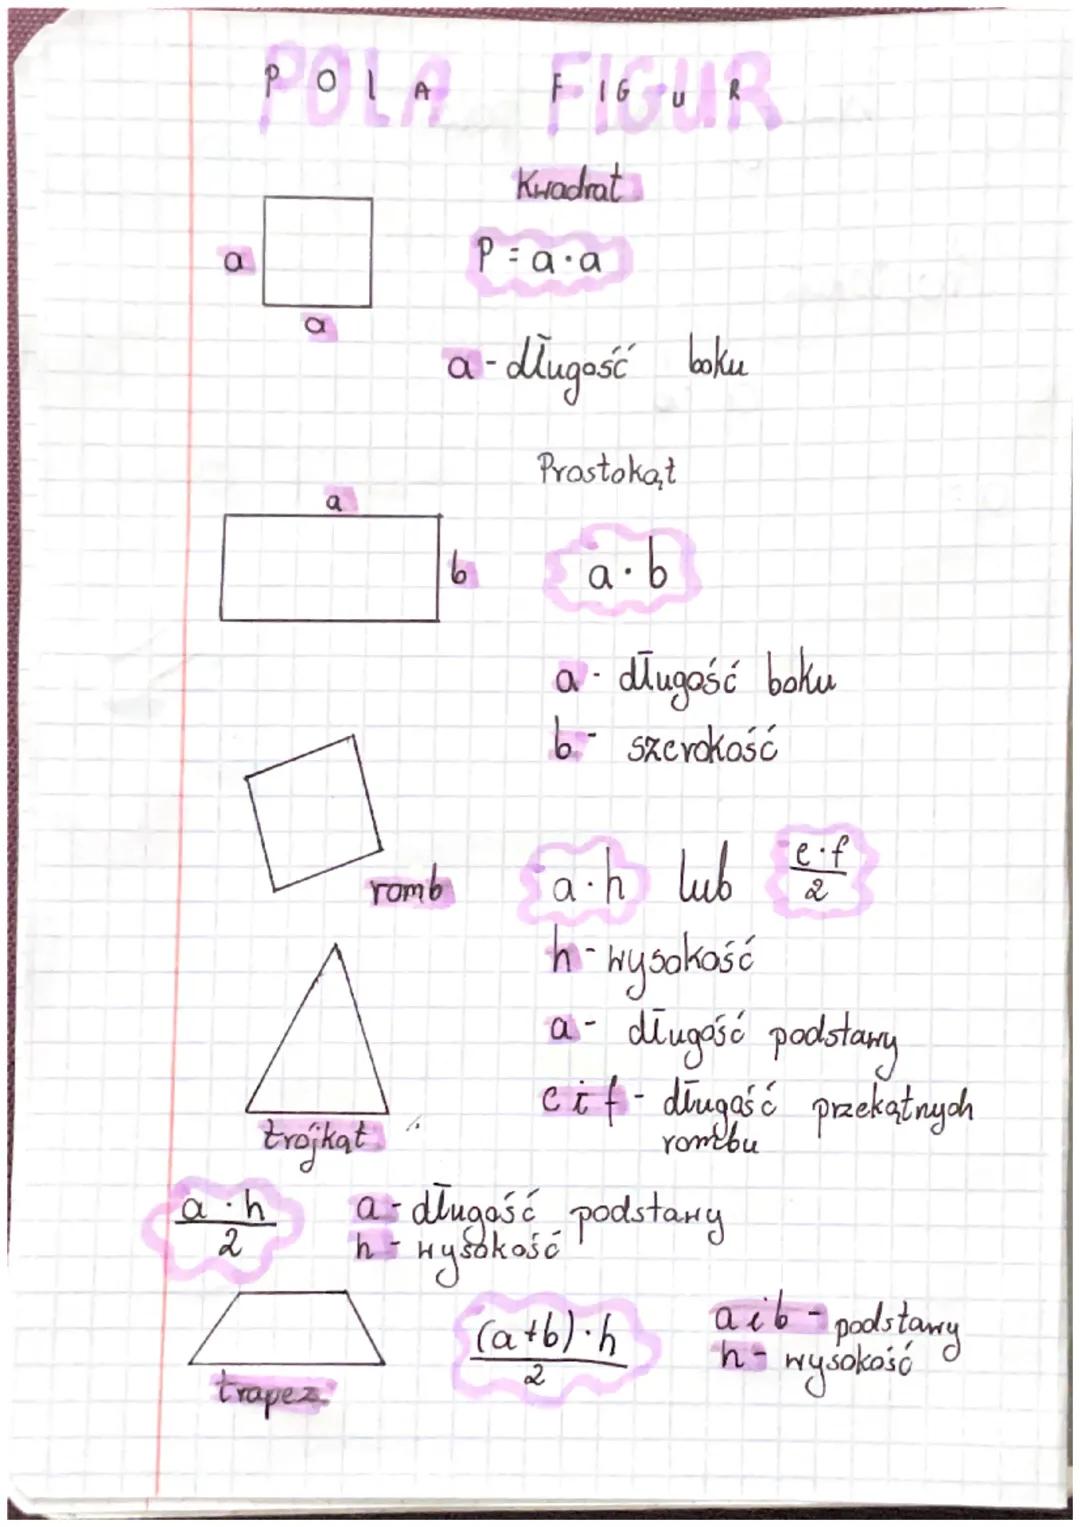 POLA FIGUR
Kwadrat
a
P = a · a
a
a - długość boku
Prostokąt
a
b
a · b
a - długość boku
b - szerokość
romb
a · h lub e · f / 2
h - wysokość
a - długość podstawy
e i f - długość przekątnych
rombu
trójkąt
a · h / 2
a - długość podstawy
h - wysokość
trapez
(a+b) · h / 2
a i b - podstawy
h - wysokość